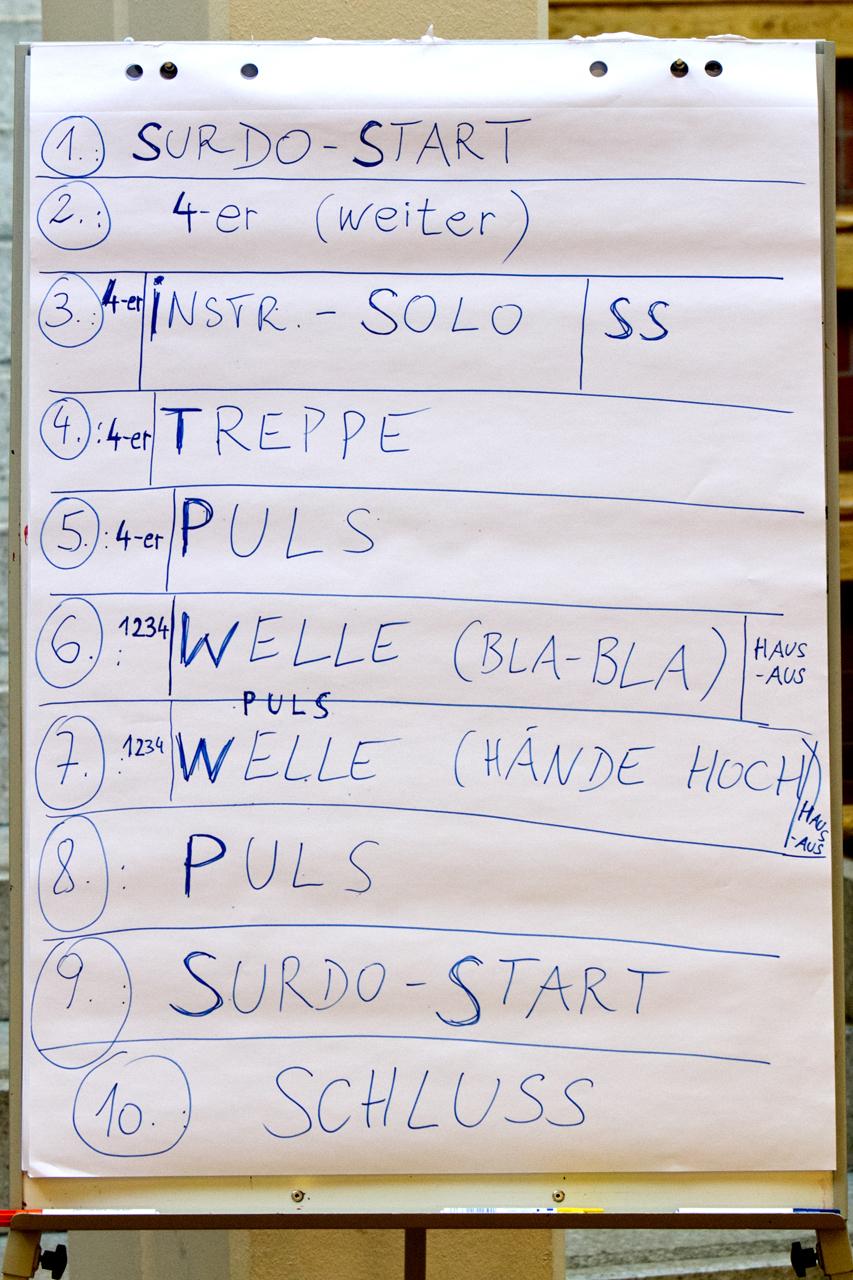 1.: SURDO-START
2.: 4-er (weiter)
3.: 4-er INSTR. - SOLO SS
4.: 4-er TREPPE
5.: 4-er PULS
6.: 1234 WELLE (BLA-BLA) HAUS
-AUS
PULS
7.: 1234 WELLE (HÄNDE HOCH)
HAUS
-AUS
8.: PULS
9.: SURDO-START
10.: SCHLUSS